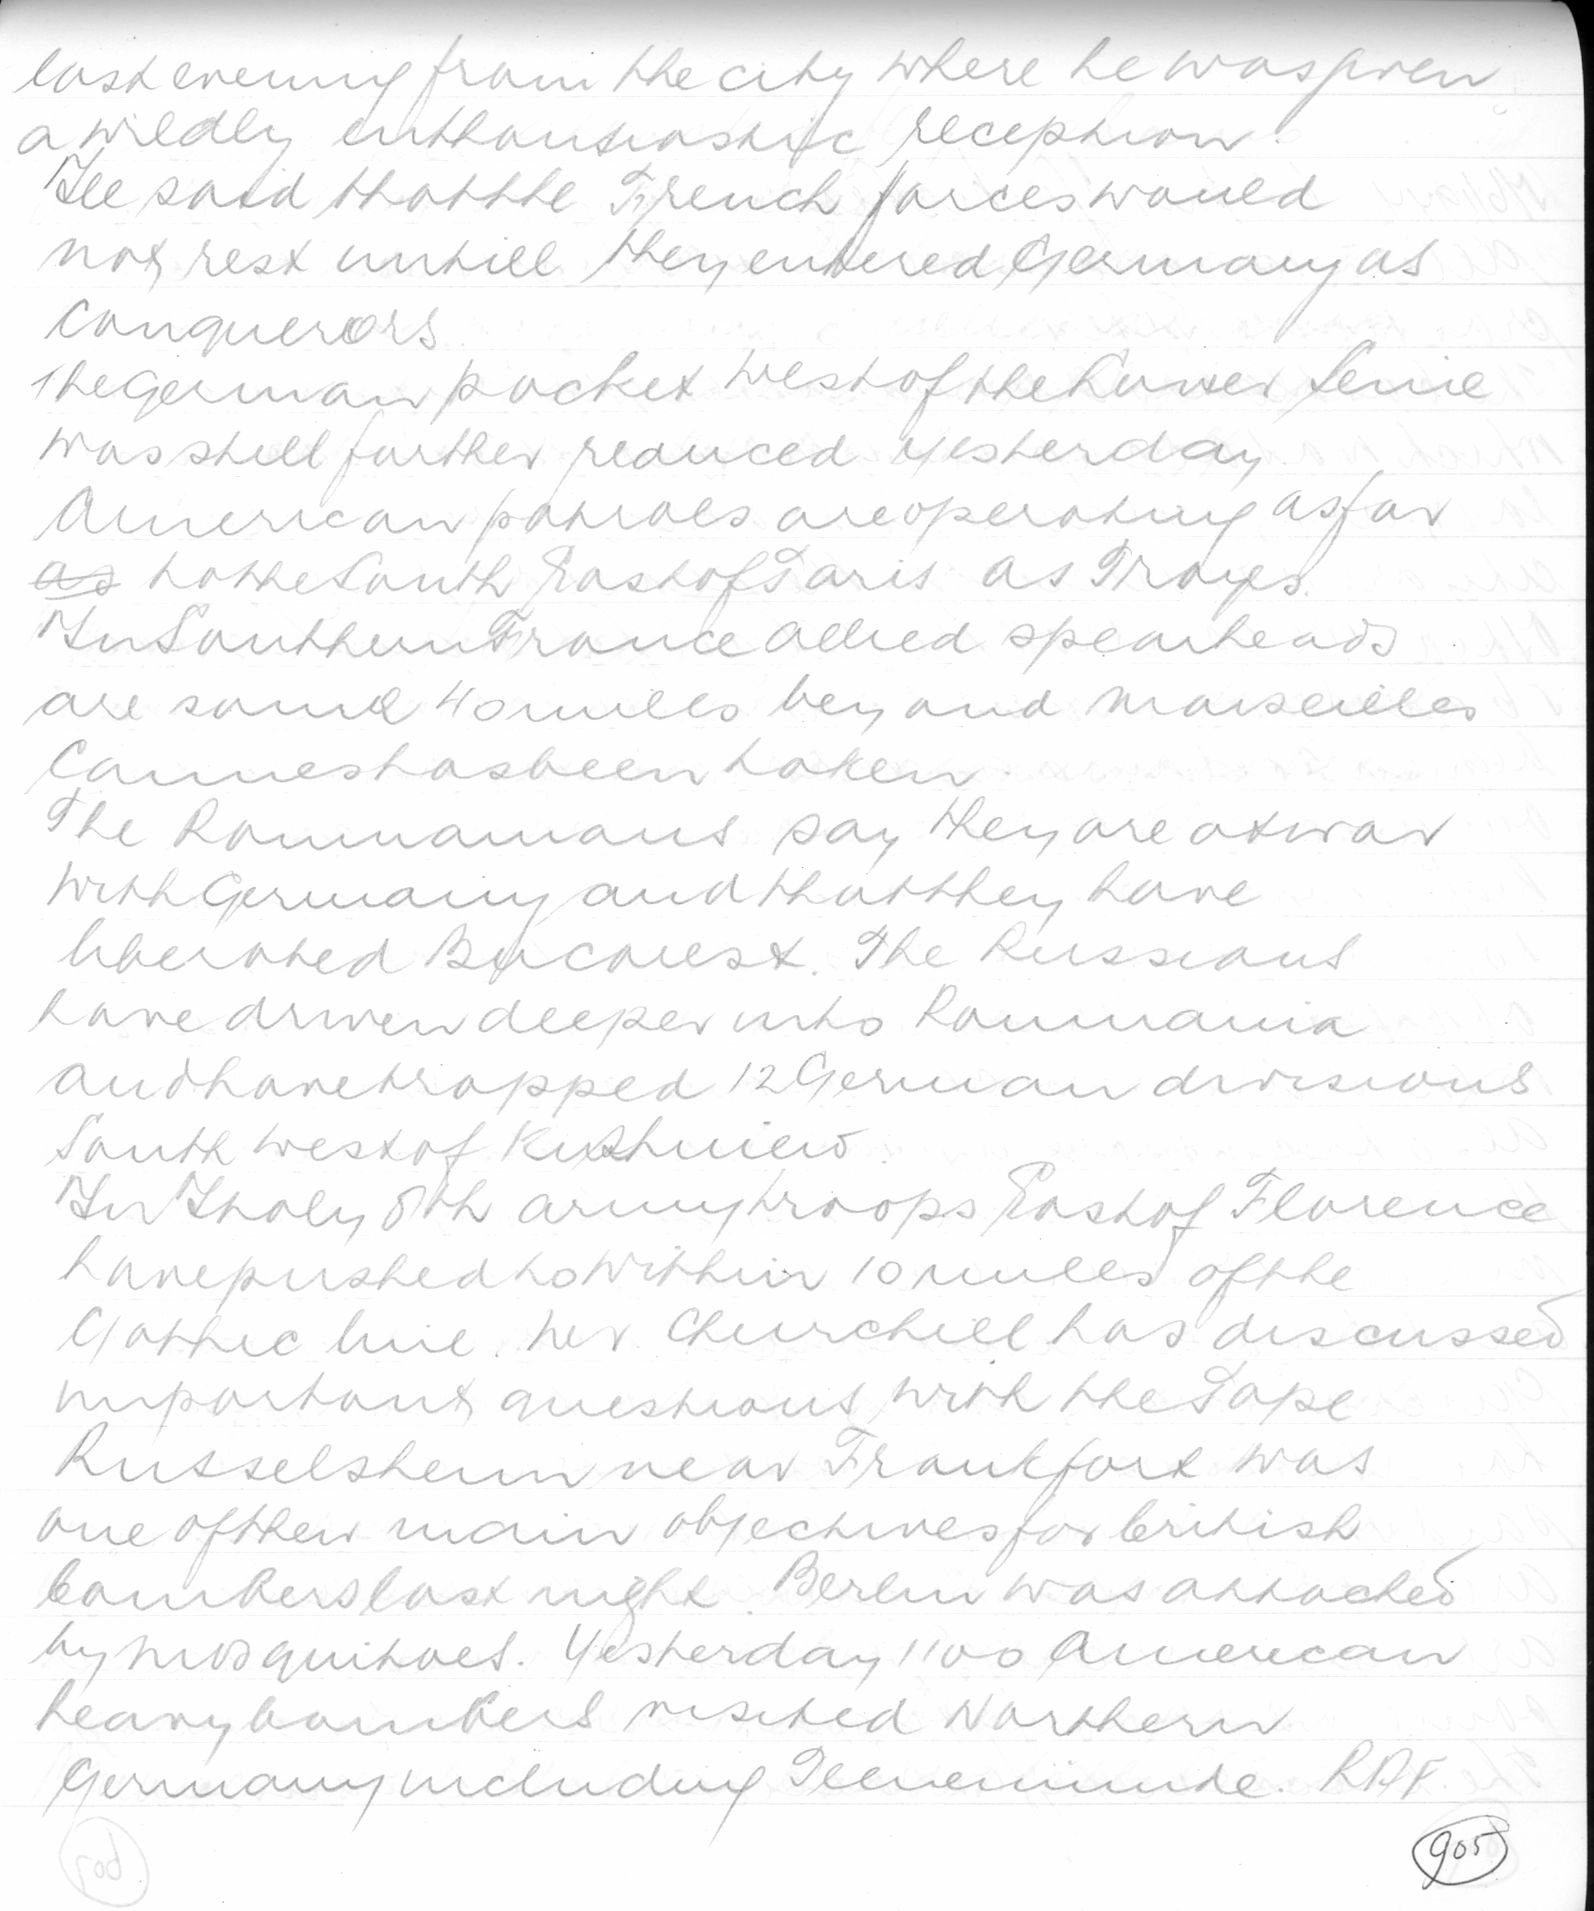 last evening from the city where he was given
a wildly enthousiastic reception.
He said that the French forces would
not rest untill they entered Germany as
Conquerors.
The German pocket west of the Lower Seine
was still further reduced yesterday.
American patroles are operating as far
as to the South East of Paris as Troyes.
In Southern France allied spearheads
are some 40 miles beyond Marseilles
Cannes has been taken.
The Roumanians say they are at war
with Germany and that they have
liberated Bucarest. The Russians
have driven deeper into Roumania
and have trapped 12 German divisions
South west of Kishniew.
In Italy 8th army troops East of Florence
have pushed to within 10 miles of the
Gothic line. Mr Churchill has discussed
important questions with the Pope
Russelsheim near Frankfort was
one of their main objectives for british
bombers last night. Berlin was attacked
by mosquitoes. Yesterday 1100 American
heavy bombers visited Northern
Germany including Peenemünde. RAF.
905